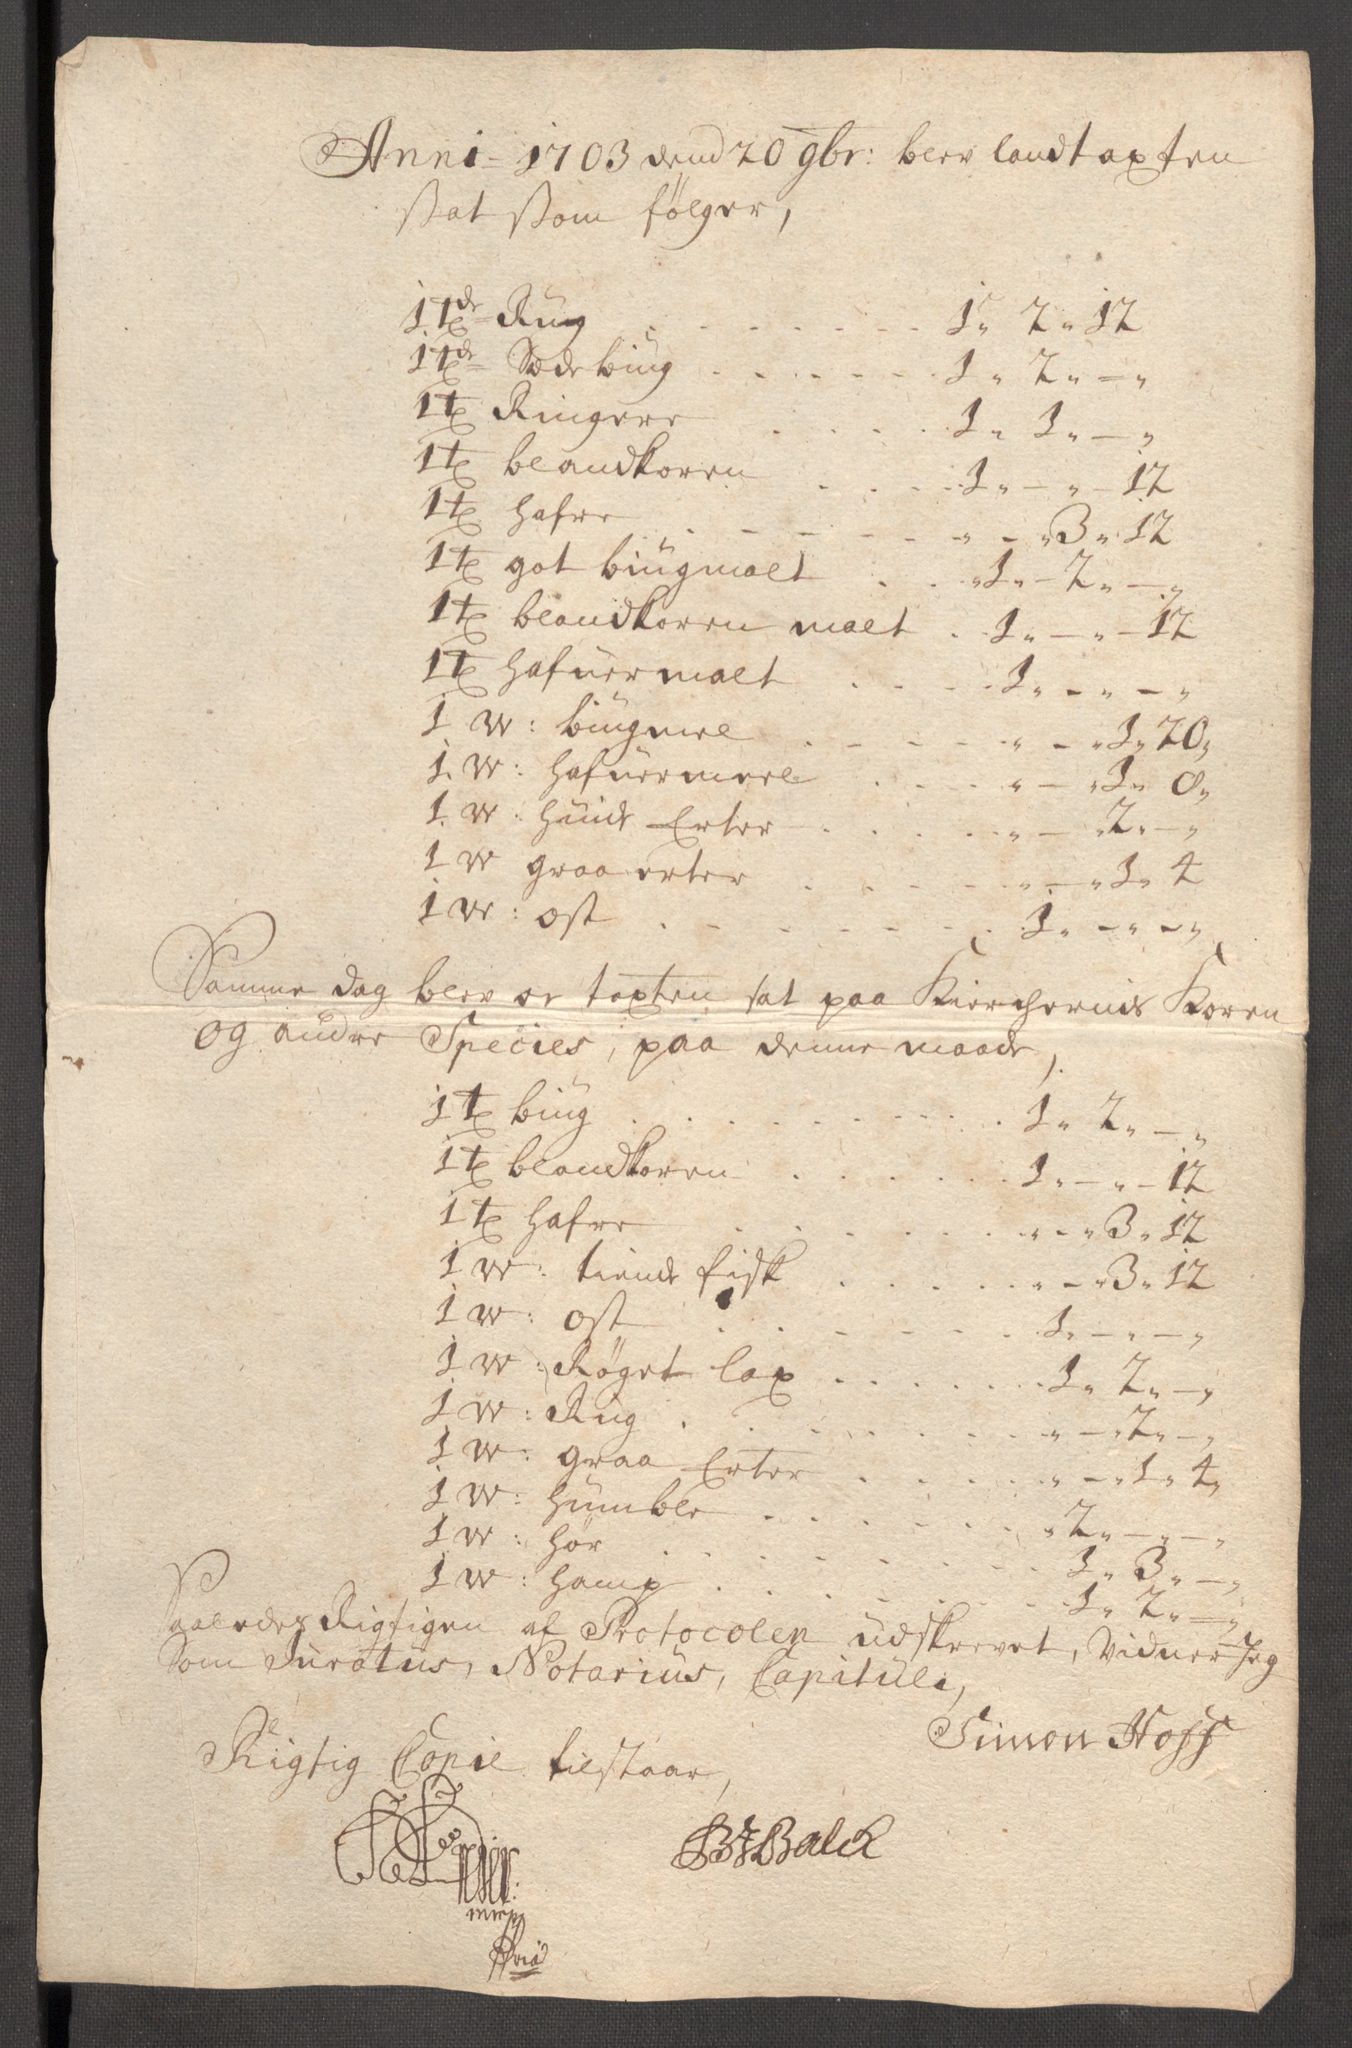 Anni - 1703 dend 20 9br: blev landtaxten
sat som følger,
1 tde Rug . . . . . . . 1 " 2 " 12
1 tde Sæde biug . . . . . 1 " 2 " — "
1 t Ringere . . . . 1 " 1 " — "
1 t blandkoren . . . . 1 " — " — 12
1 t hafre . - - - - - " - " 3 " 12
1 t got biugmalt . . . " 1 " — 2 " — "
1 t blandkoren malt . . 1 " — " — 12
1 t hafuermalt . . . . 1 " — " — "
1 W : biugmel . - . - - " - " 1 " 20 "
1 W : hafuermeel . . . . " — " 1 " 8 "
1 W : huide Erter . . . . . " — " 2 " — "
1 W graa erter . . . . . " — " 1 " 4
1 W : ost . . - - - - - . 1 " — " — "
Samme dag blev oc taxten sat paa Kierchernis Koren
og andre Species, paa denne maade,
1 t biug . . . . . . . . . 1 " 2 " — "
1 t blandkoren . . . . . . 1 " — " — 12
1 t hafre . . . . . . " — " 3 " 12
1 W : tiende fisk . . . . . " — " 3 " 12
1 W : ost . . . . . . . 1 " — " — "
1 W : Røget lax . . . . . . . 1 " 2 " — "
1 W : Rug . . . . . . . . " — " 2 " — "
1 W : graa Erter . . . . . " — " 1 " 4 "
1 W : humble . . . . . . " 2 " — " — "
1 W : hör . . . . . . . . . 1 " 3 " — "
1 W : hamp . . . . . . . . . 1 " 2 " — "
Saaledes Rigtigen af Protocolen udskrevet, Vidner Jeg
Som Juratus, Notarius, Capituli,
Simon Hoff
Rigtig Copie tilstaar,
Balck
mmpp